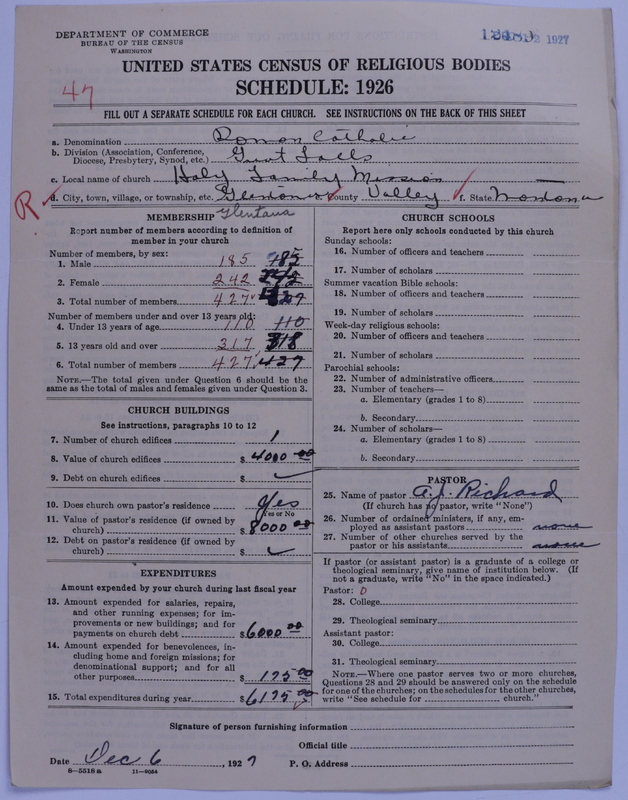 DEPARTMENT OF COMMERCE
BUREAU OF THE CENSUS
WASHINGTON
1927
UNITED STATES CENSUS OF RELIGIOUS BODIES
SCHEDULE: 1926
47
FILL OUT A SEPARATE SCHEDULE FOR EACH CHURCH. SEE INSTRUCTIONS ON THE BACK OF THIS SHEET
a. Denomination Roman Catholic
b. Division (Association, Conference,
Diocese, Presbytery, Synod, etc.) Great Falls
c. Local name of church Holy Family Mission
R
d. City, town, village, or township, etc. County Valley f. State Montana
Glentana
MEMBERSHIP
Report number of members according to definition of
member in your church
Number of members, by sex:
1. Male 185 185
2. Female 242 242
3. Total number of members 427 427
Number of members under and over 13 years old:
4. Under 13 years of age 110 110
5. 13 years old and over 317 318
6. Total number of members 427 427
NOTE.—The total given under Question 6 should be the
same as the total of males and females given under Question 3.
CHURCH BUILDINGS
See instructions, paragraphs 10 to 12
7. Number of church edifices 1
8. Value of church edifices $ 4000 00
9. Debt on church edifices $
10. Does church own pastor's residence Yes
Yes or No
11. Value of pastor's residence (if owned by
church) $ 8000 00
12. Debt on pastor's residence (if owned by
church) $
EXPENDITURES
Amount expended by your church during last fiscal year
13. Amount expended for salaries, repairs,
and other running expenses; for im-
provements or new buildings; and for
payments on church debt $ 6000 00
14. Amount expended for benevolences, in-
cluding home and foreign missions; for
denominational support; and for all
other purposes $ 175 00
15. Total expenditures during year $ 6175 00
CHURCH SCHOOLS
Report here only schools conducted by this church
Sunday schools:
16. Number of officers and teachers
17. Number of scholars
Summer vacation Bible schools:
18. Number of officers and teachers
19. Number of scholars
Week-day religious schools:
20. Number of officers and teachers
21. Number of scholars
Parochial schools:
22. Number of administrative officers
23. Number of teachers—
a. Elementary (grades 1 to 8)
b. Secondary
24. Number of scholars—
a. Elementary (grades 1 to 8)
b. Secondary
PASTOR
25. Name of pastor A. J. Richard
(If church has no pastor, write "None")
26. Number of ordained ministers, if any, em-
ployed as assistant pastors none
27. Number of other churches served by the
pastor or his assistants none
If pastor (or assistant pastor) is a graduate of a college or
theological seminary, give name of institution below. (If
not a graduate, write "No" in the space indicated.)
Pastor: 0
28. College
29. Theological seminary
Assistant pastor:
30. College
31. Theological seminary
NOTE.—Where one pastor serves two or more churches,
Questions 28 and 29 should be answered only on the schedule
for one of the churches; on the schedules for the other churches,
write "See schedule for church."
Signature of person furnishing information
Official title
Date Dec 6, 1927 P. O. Address
8—5518a 11—9054